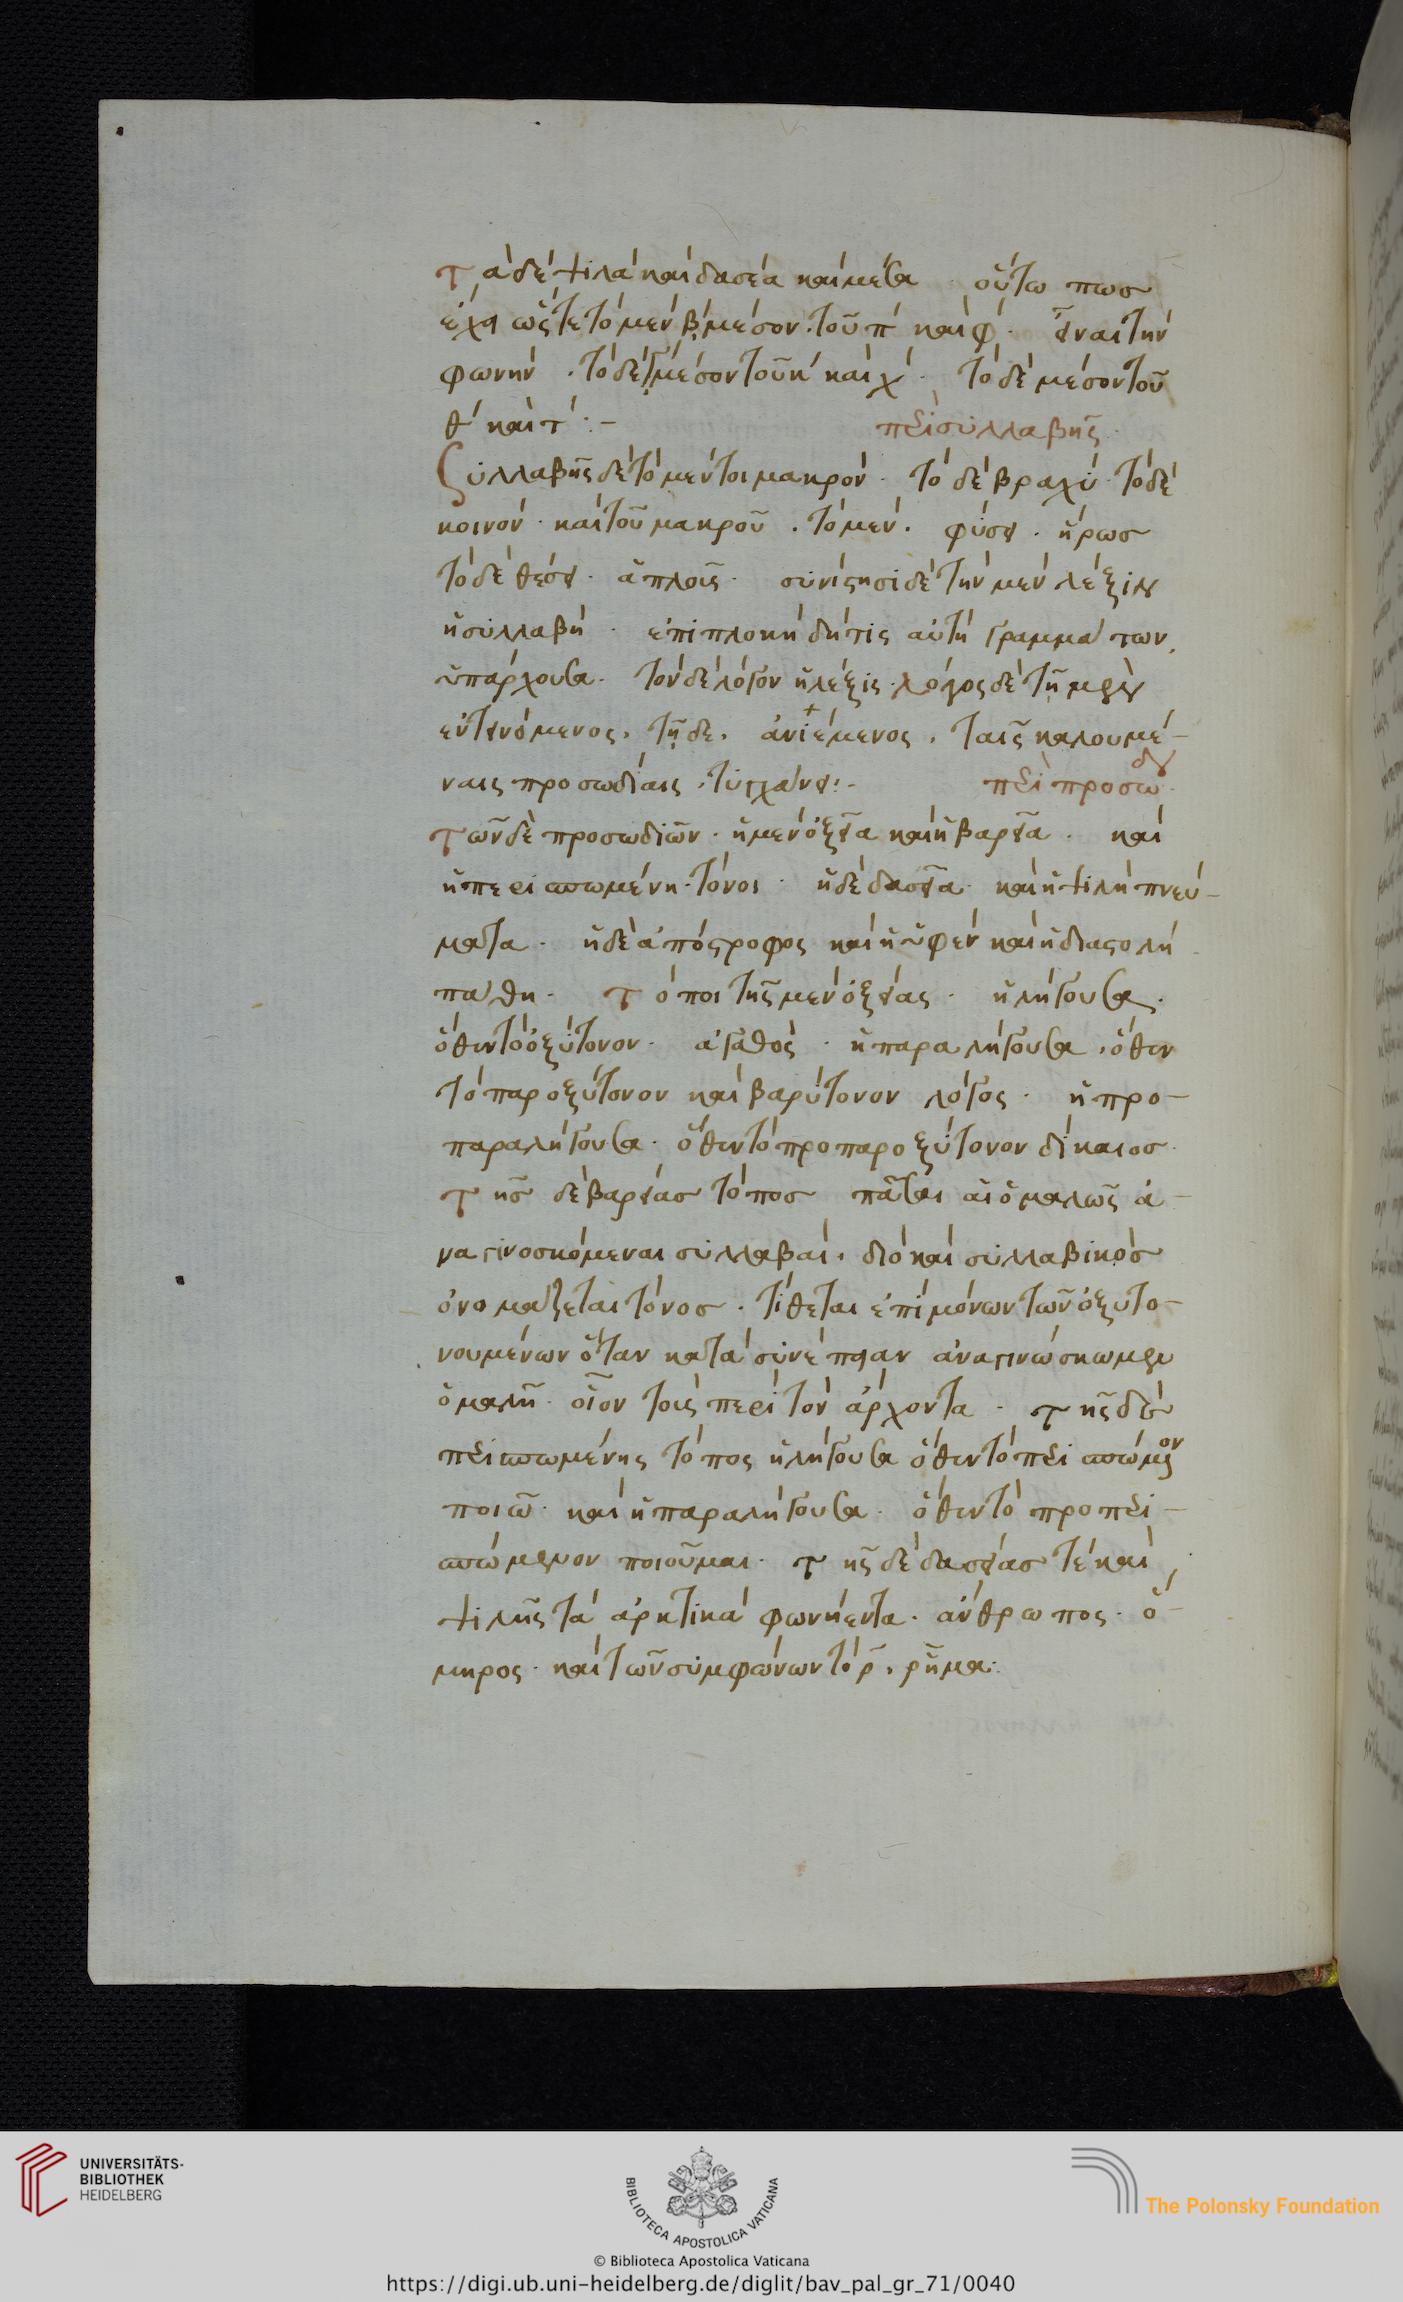 τὰ δὲ ψιλὰ καὶ δασέα καὶ μέσα · οὕτω πως
ἔχει ὥστε τὸ μὲν β μέσον τοῦ π καὶ φ · εἶναι τὴν
φωνήν · τὸ δὲ γ μέσον τοῦ κ καὶ χ · τὸ δὲ μέσον τοῦ
θ καὶ τ :-
περὶ συλλαβῆς ·
Συλλαβῆς δὲ τὸ μέν τοι μακρόν · τὸ δὲ βραχύ · τὸ δὲ
κοινόν · καὶ τοῦ μακροῦ · τὸ μὲν · φύσει · ἥρως
τὸ δὲ θέσει · ἁπλοῖς · συνίστησι δὲ τὴν μὲν λέξιν
ἡ συλλαβή · ἐπιπλοκὴ δή τις αὐτὴ γραμμάτων
ὑπάρχουσα · τὸν δὲ λόγον ἡ λέξις · λόγος δὲ τῇ μὲν
ἐντεινόμενος · τῇ δε · ἀνιέμενος · ταῖς καλουμέ-
ναις προσωδίαις · τυγχάνει :-
περὶ προσωδιῶν
τῶν δὲ προσωδιῶν · ἡ μὲν ὀξεῖα καὶ ἡ βαρεῖα · καὶ
ἡ περισπωμένη · τόνοι · ἡ δὲ δασεῖα · καὶ ἡ ψιλὴ πνεύ-
ματα · ἡ δὲ ἀπόστροφος καὶ ἡ ὑφὲν καὶ ἡ διαστολὴ
πάθη · τόποι τῆς μὲν ὀξείας · ἡ λήγουσα ·
ὅθεν τὸ ὀξύτονον · ἀγαθὸς · ἡ παραλήγουσα · ὅθεν
τὸ παροξύτονον καὶ βαρύτονον λόγος · ἡ προ-
παραλήγουσα · ὅθεν τὸ προπαροξύτονον δίκαιος ·
τῆς δὲ βαρείας τόπος πᾶσαι αἱ ὁμαλῶς ἀ-
ναγινοσκόμεναι συλλαβαί · διὸ καὶ συλλαβικὸς
ὀνομάζεται τόνος · τίθεται ἐπὶ μόνων τῶν ὀξυτο-
νουμένων ὅταν κατὰ συνέπειαν ἀναγινώσκωμεν
ὁμαλῆ · οἷον τοὺς περὶ τὸν ἄρχοντα · τῆς δὲ
περισπωμένης τόπος ἡ λήγουσα ὅθεν τὸ περισπώμενον
ποιῶ · καὶ ἡ παραλήγουσα · ὅθεν τὸ προπερι-
σπώμενον ποιοῦμαι · τῆς δὲ δασείας τὲ καὶ
ψιλῆς τὰ ἀρκτικὰ φωνήεντα · ἄνθρωπος · ὅ-
μηρος · καὶ τῶν συμφώνων τὸ ρ · ρῆμα :
UNIVERSITÄTS-
BIBLIOTHEK
HEIDELBERG
BIBLIOTECA APOSTOLICA VATICANA
© Biblioteca Apostolica Vaticana
The Polonsky Foundation
https://digi.ub.uni-heidelberg.de/diglit/bav_pal_gr_71/0040